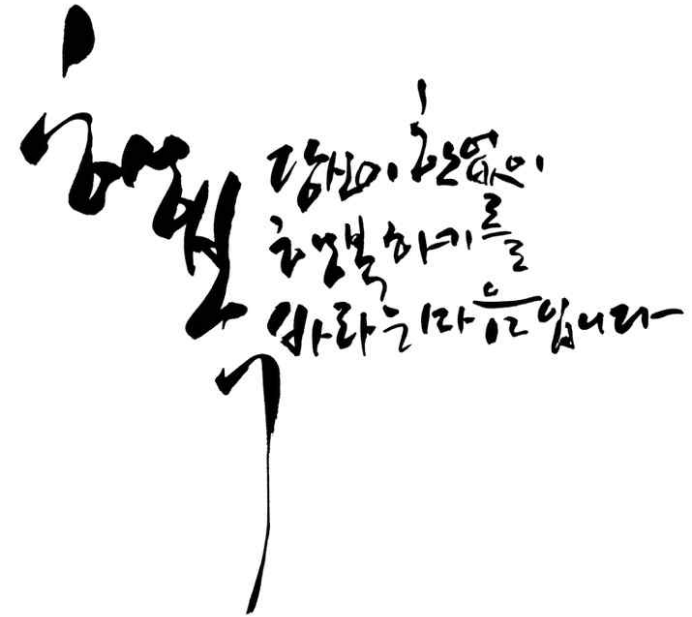 행복
당신이 한없이
행복하기를
바라는 마음입니다